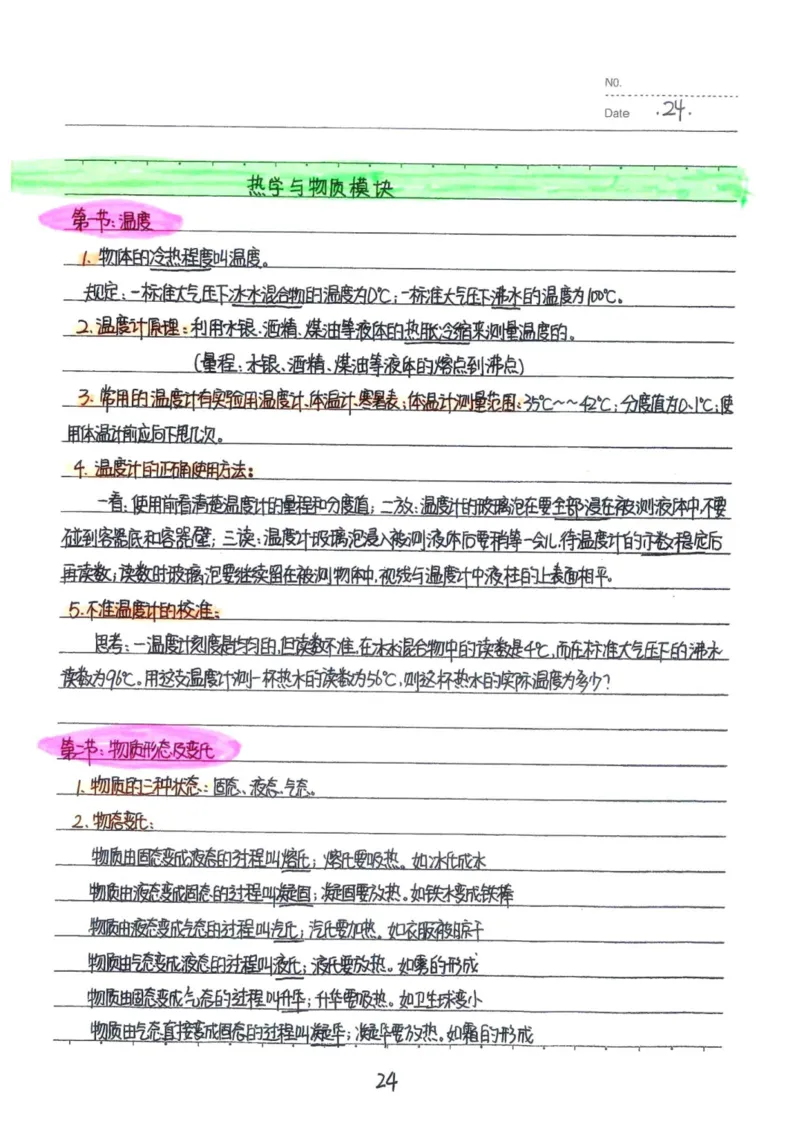 NO.
Date .24.
热学与物质模块
第一节:温度
1. 物体的冷热程度叫温度。
规定:一标准大气压下冰水混合物的温度为0℃;一标准大气压下沸水的温度为100℃。
2.温度计原理:利用水银、酒精、煤油等液体的热胀冷缩来测量温度的。
(量程:水银、酒精、煤油等液体的熔点到沸点)
3. 常用的温度计有实验用温度计、体温计、寒暑表;体温计测量范围:35℃~~42℃;分度值为0.1℃;使
用体温计前应向下甩几次。
4. 温度计的正确使用方法:
一看:使用前看清楚温度计的量程和分度值;二放:温度计的玻璃泡在要全部浸在被测液体中,不要
碰到容器底和容器壁;三读:温度计玻璃泡浸入被测液体后要稍等一会儿,待温度计的示数稳定后
再读数;读数时玻璃泡要继续留在被测物体中,视线与温度计中液柱的上表面相平。
5.不准温度计的校准:
思考:一温度计刻度是均匀的,但读数不准,在冰水混合物中的读数是4℃,而在标准大气压下的沸水
读数为96℃。用这支温度计测一杯热水的读数为56℃,则这杯热水的实际温度为多少?
第二节:物质形态及变化
1.物质的三种状态:固态、液态、气态。
2.物态变化:
物质由固态变成液态的过程叫熔化;熔化要吸热。如冰化成水
物质由液态变成固态的过程叫凝固;凝固要放热。如铁水变成铁棒
物质由液态变成气态的过程叫汽化;汽化要加热。如衣服被晾干
物质由气态变成液态的过程叫液化;液化要放热。如雾的形成
物质由固态变成气态的过程叫升华;升华要吸热。如卫生球变小
物质由气态直接变成固态的过程叫凝华;凝华要放热。如霜的形成
24